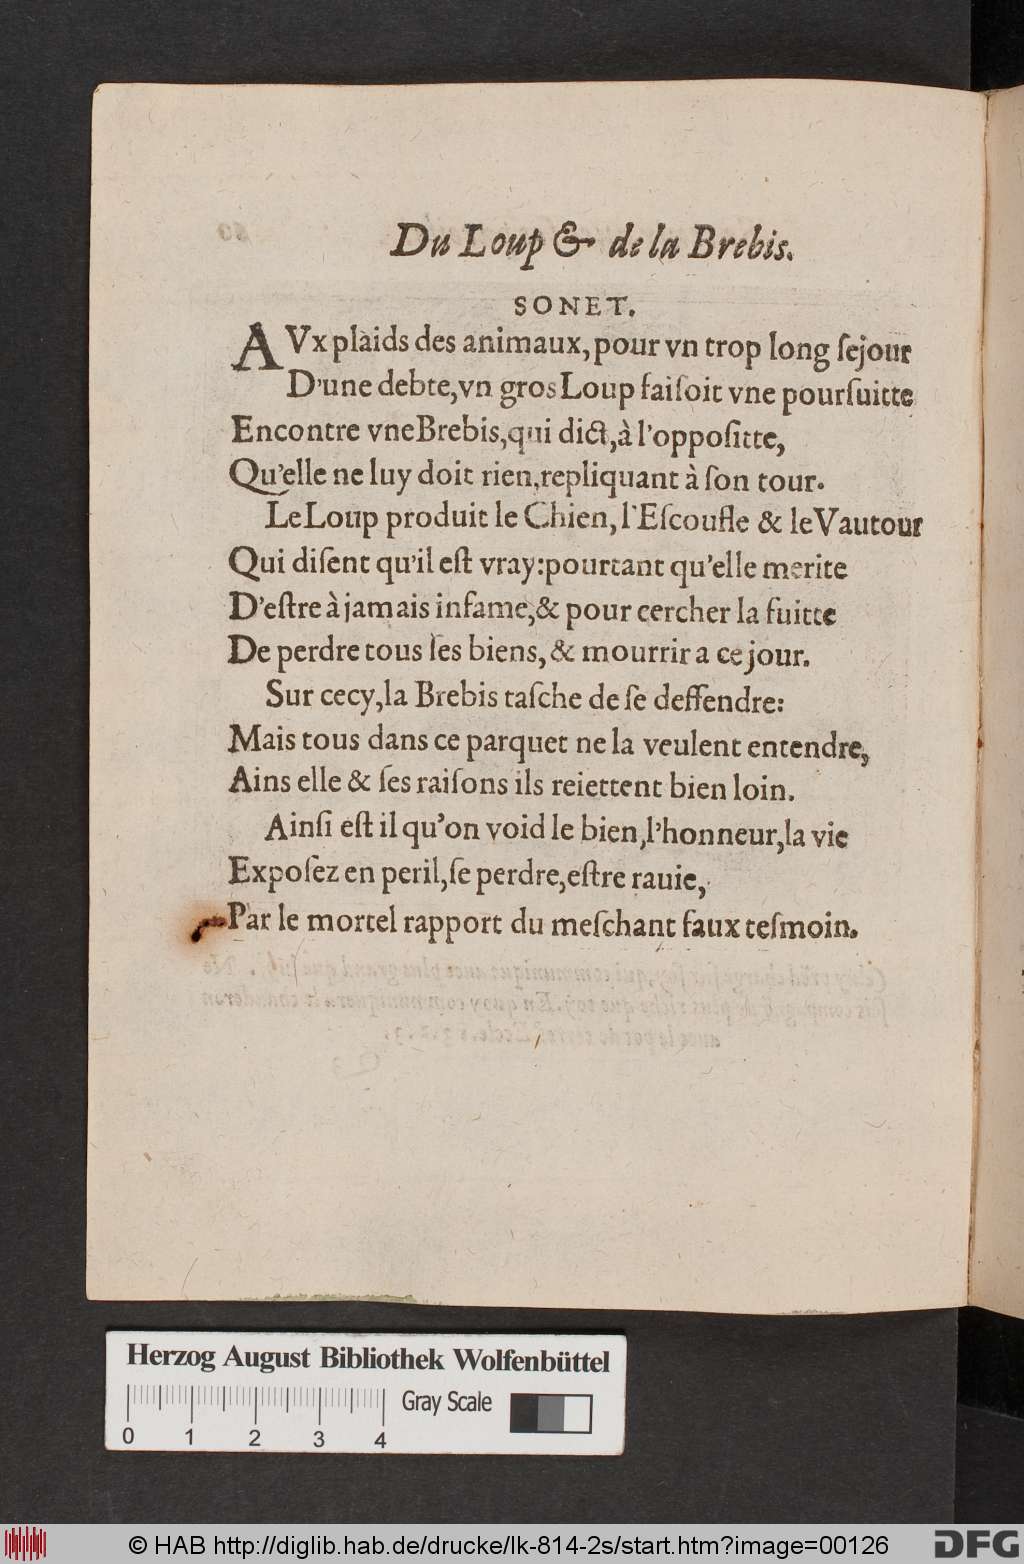 Du Loup & de la Brebis.
SONET.
AVx plaids des animaux, pour vn trop long ſejour
D'une debte, vn gros Loup faiſoit vne pourſuitte
Encontre vne Brebis, qui dict, à l'oppoſitte,
Qu'elle ne luy doit rien, repliquant à ſon tour.
Le Loup produit le Chien, l'Eſcoufle & le Vautour
Qui diſent qu'il eſt vray: pourtant qu'elle merite
D'eſtre à jamais infame, & pour cercher la fuitte
De perdre tous ſes biens, & mourrir a ce jour.
Sur cecy, la Brebis taſche de ſe deffendre:
Mais tous dans ce parquet ne la veulent entendre,
Ains elle & ſes raiſons ils reiettent bien loin.
Ainſi eſt il qu'on void le bien, l'honneur, la vie
Expoſez en peril, ſe perdre, eſtre rauie,
Par le mortel rapport du meſchant faux teſmoin.
Herzog August Bibliothek Wolfenbüttel
Gray Scale
0 1 2 3 4
© HAB http://diglib.hab.de/drucke/lk-814-2s/start.htm?image=00126
DFG